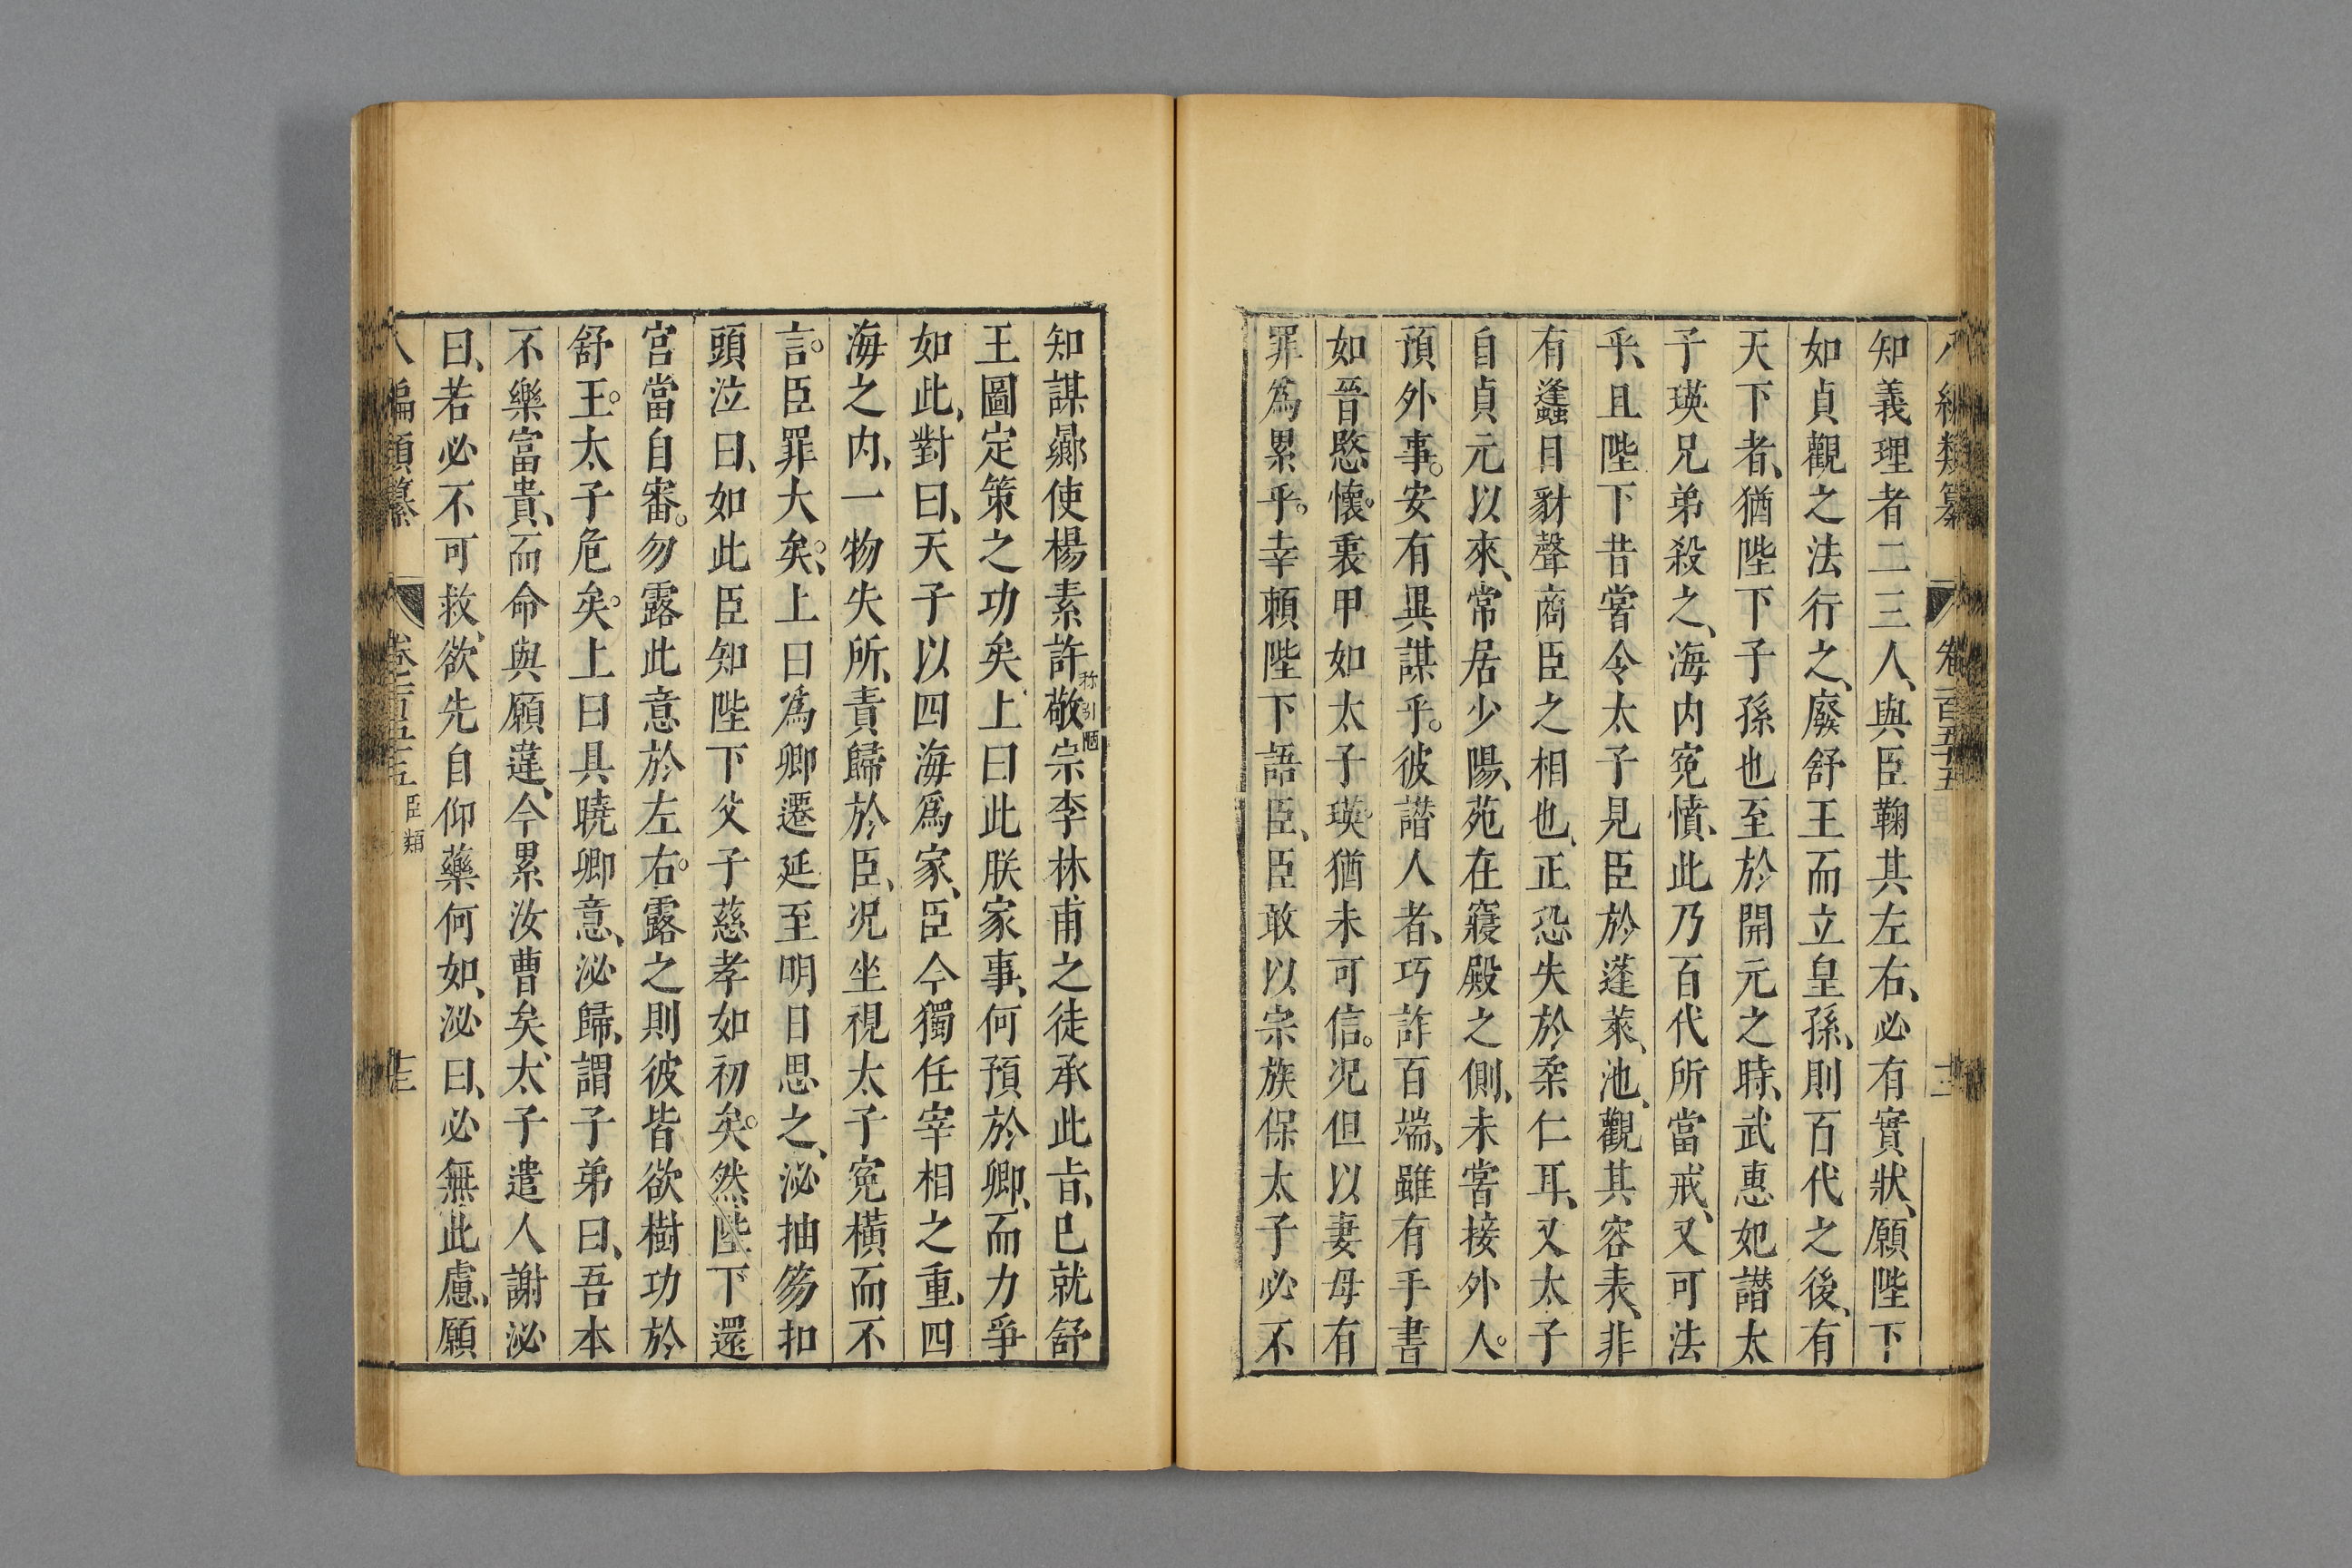 八編類纂 卷一百五十五 十二
知義理者二三人、與臣鞠其左右、必有實狀、願陛下
如貞觀之法行之、廢舒王而立皇孫、則百代之後、有
天下者、猶陛下子孫也至於開元之時、武惠妃譖太
子瑛兄弟殺之、海内寃憤、此乃百代所當戒、又可法
乎、且陛下昔嘗令太子見臣於蓬萊、池、觀其容表、非
有蠭目豺聲商臣之相也、正恐失於柔仁耳、又太子
自貞元以來、常居少陽、苑在寢殿之側、未嘗接外人。
預外事。安有異謀乎。彼譖人者、巧詐百端、雖有手書
如晉愍懷。裹甲如太子瑛猶未可信。况但以妻母有
罪爲累乎。幸賴陛下語臣、臣敢以宗族保太子必不
知謀曏使楊素許敬宗李林甫之徒承此㫖、已就舒
称引陋
王圖定策之功矣、上曰此朕家事、何預於卿、而力爭
如此、對曰、天子以四海爲家、臣今獨任宰相之重、四
海之内、一物失所、責歸於臣、况坐視太子寃橫而不
言。臣罪大矣。上曰爲卿遷延至明日思之、泌抽笏扣
頭泣曰、如此臣知陛下父子慈孝如初矣。然陛下還
宮當自審。勿露此意於左右。露之則彼皆欲樹功於
舒王。太子危矣。上曰具曉卿意、泌歸、謂子弟曰、吾本
不樂富貴、而命與願違、今累汝曹矣、太子遣人謝泌
曰、若必不可救、欲先自仰藥何如、泌曰、必無此慮、願
八編類纂 卷一百五十五 臣類 十三